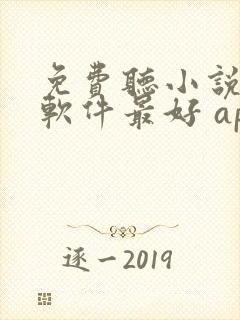 免費聽小說
軟件最好 ap
逐一2019